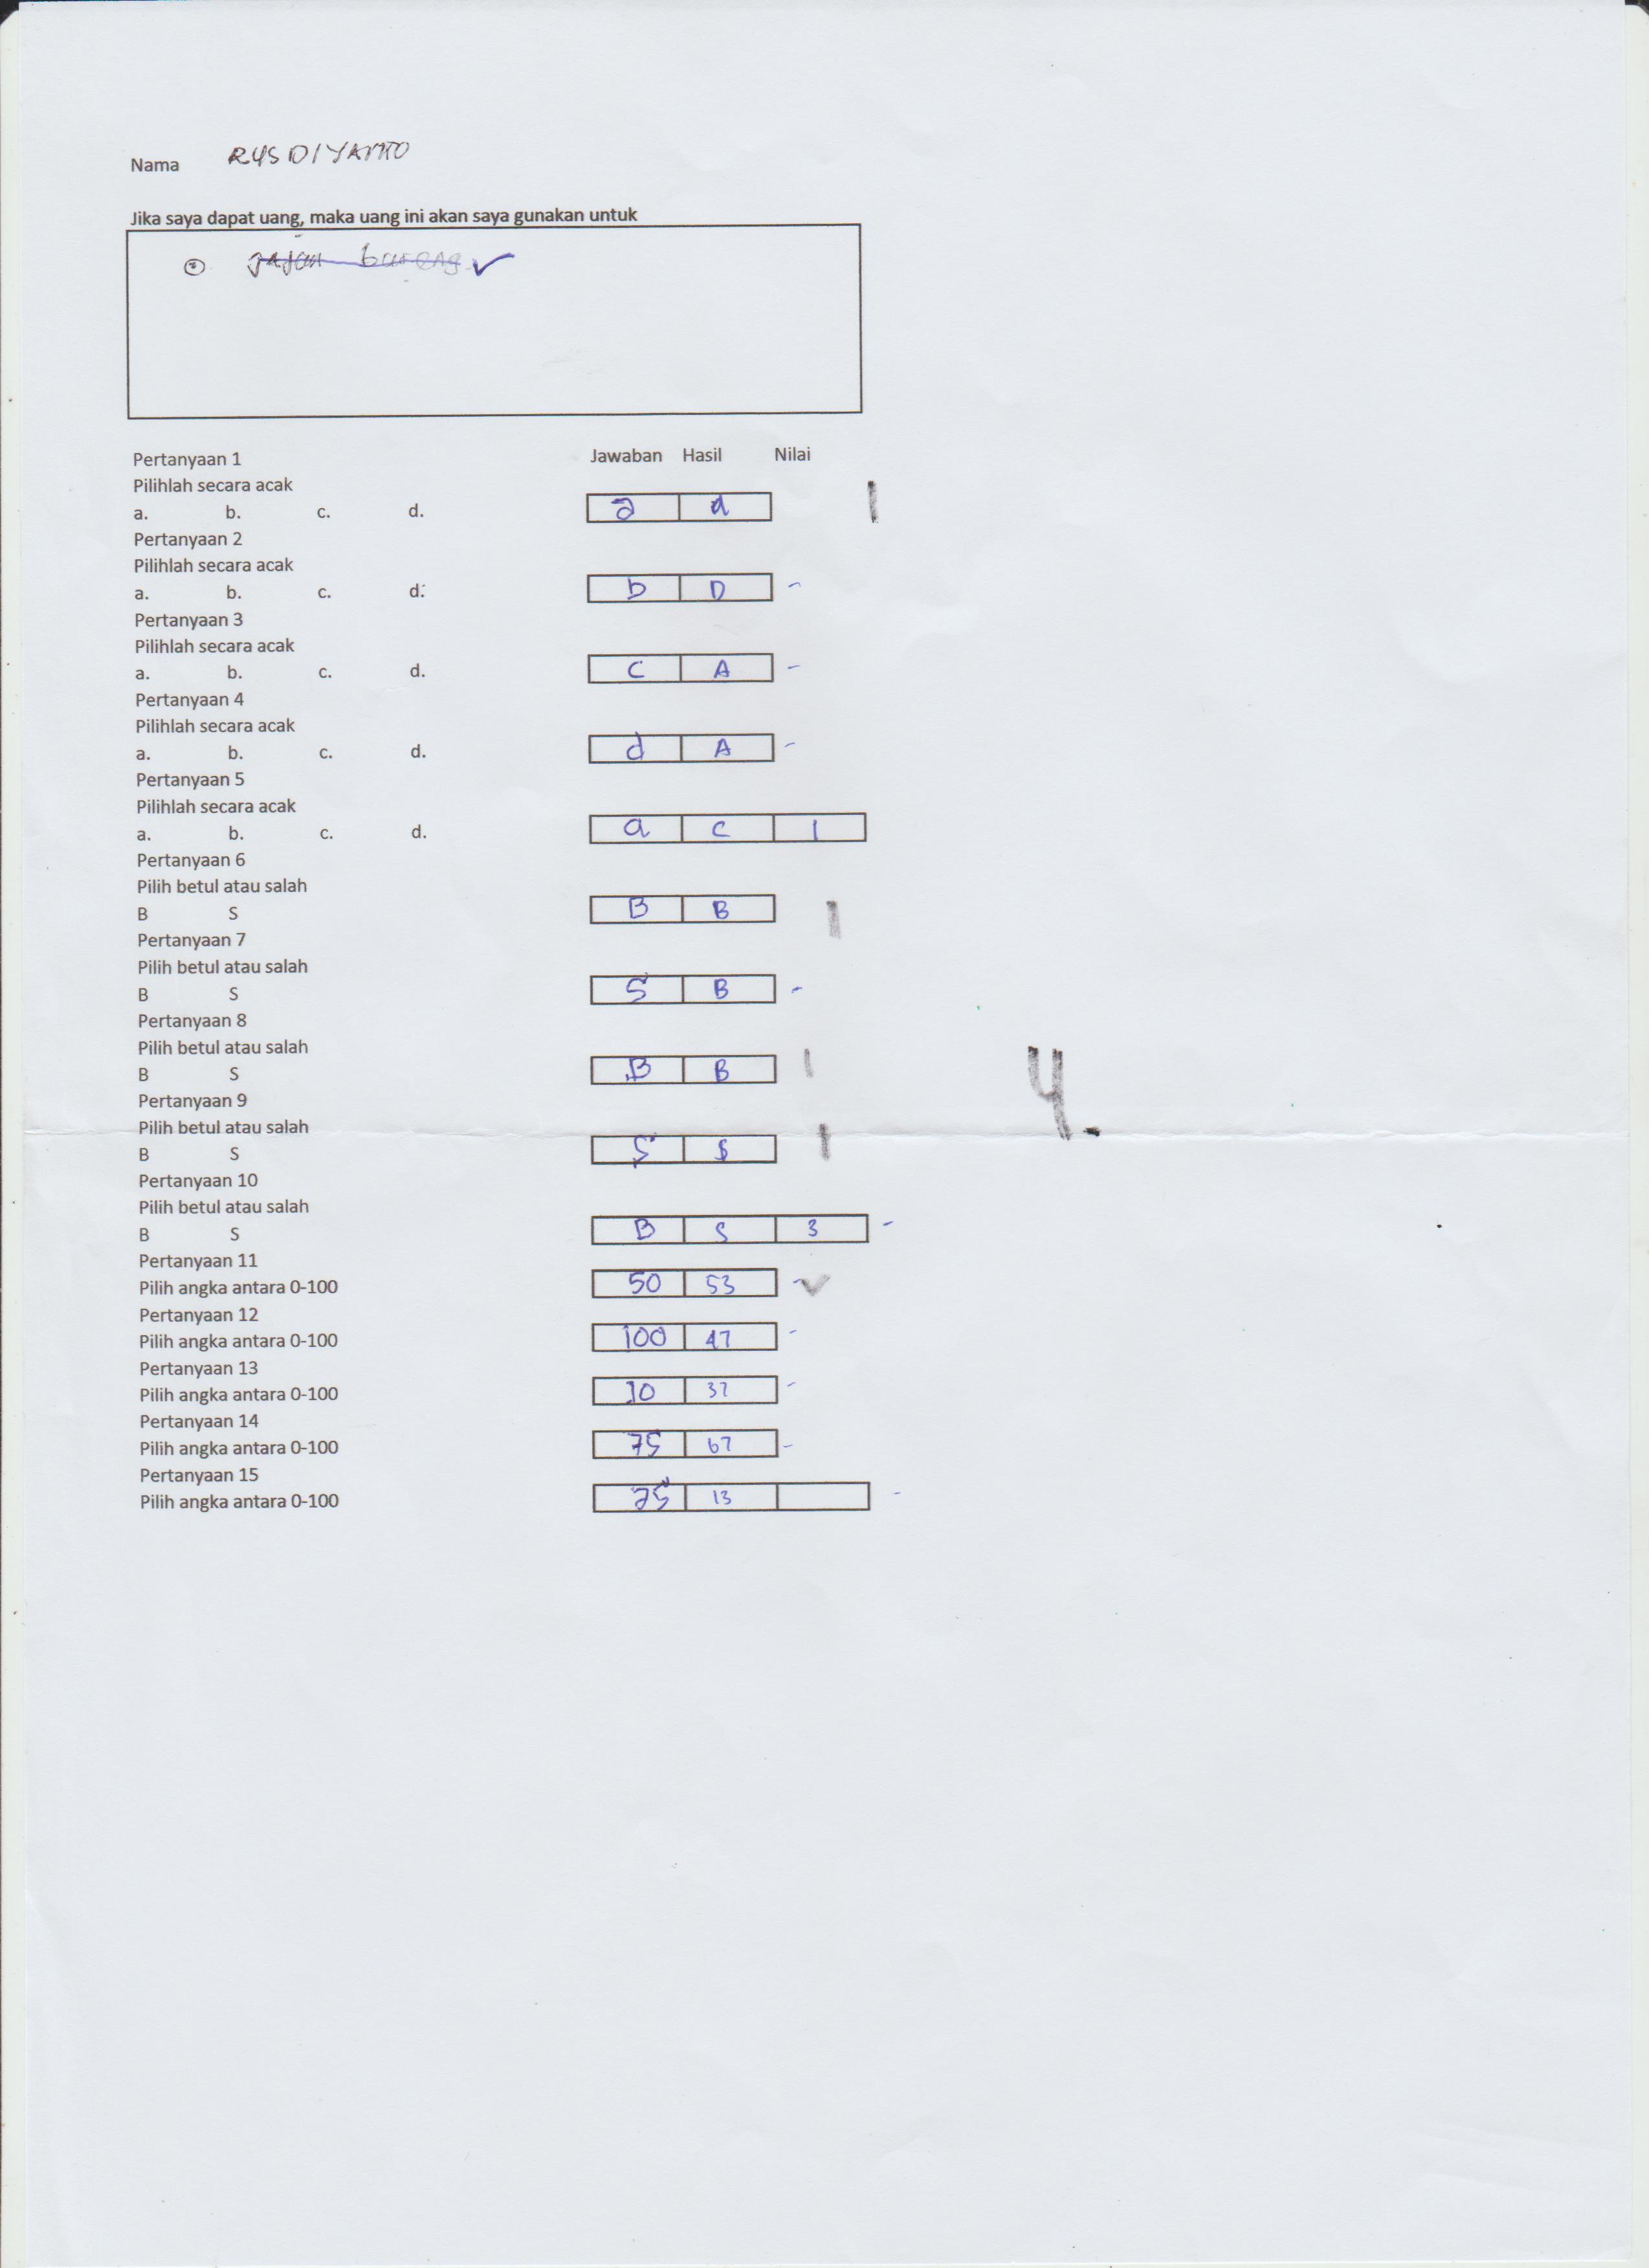 Nama RUSDIYANTO
Jika saya dapat uang, maka uang ini akan saya gunakan untuk
jajan bareng ✓
Pertanyaan 1 Jawaban Hasil Nilai
Pilihlah secara acak
a. b. c. d. a a 1
Pertanyaan 2
Pilihlah secara acak
a. b. c. d. b D -
Pertanyaan 3
Pilihlah secara acak
a. b. c. d. C A -
Pertanyaan 4
Pilihlah secara acak
a. b. c. d. d A -
Pertanyaan 5
Pilihlah secara acak
a. b. c. d. a C 1
Pertanyaan 6
Pilih betul atau salah
B S B B 1
Pertanyaan 7
Pilih betul atau salah
B S S B -
Pertanyaan 8
Pilih betul atau salah
B S B B 1
Pertanyaan 9
Pilih betul atau salah
B S S S 1
Pertanyaan 10
Pilih betul atau salah
B S B S 3 -
Pertanyaan 11
Pilih angka antara 0-100 50 53 - ✓
Pertanyaan 12
Pilih angka antara 0-100 100 47 -
Pertanyaan 13
Pilih angka antara 0-100 10 37 -
Pertanyaan 14
Pilih angka antara 0-100 75 67 -
Pertanyaan 15
Pilih angka antara 0-100 25 13 -
4.